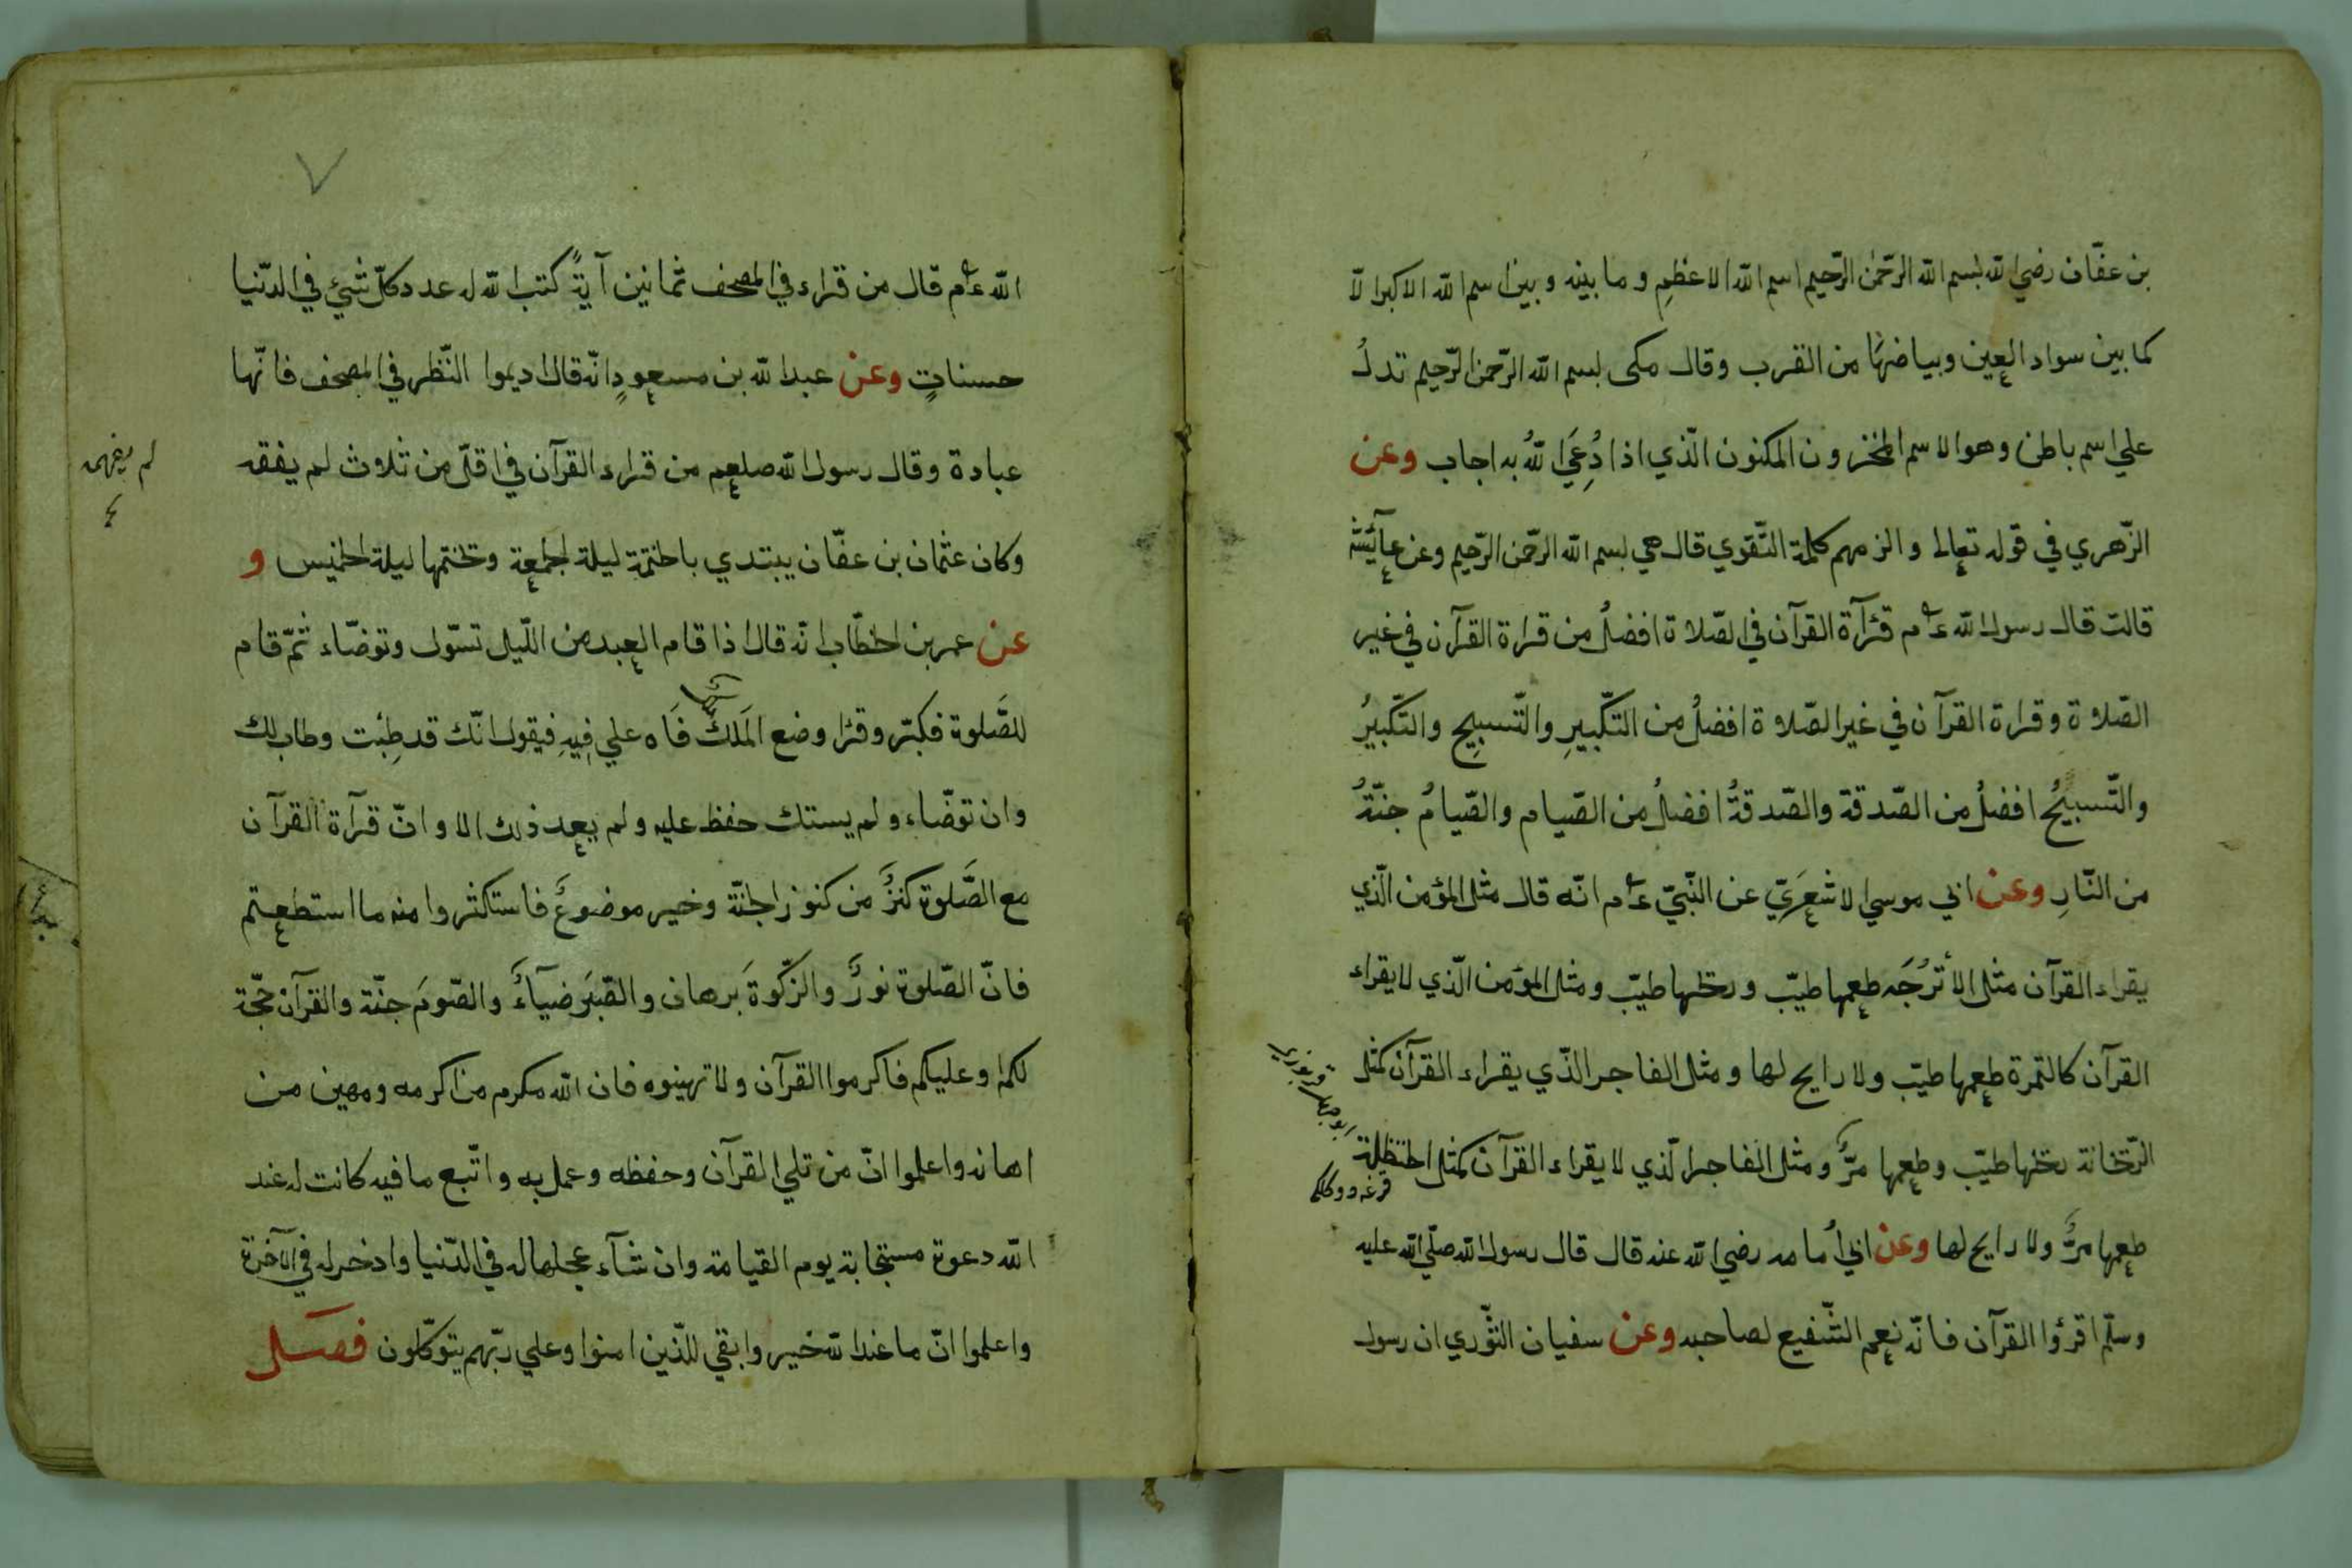 بن عفّان رضي الله بسم الله الرّحمٰن الرّحيم اسم الله الاعظم وما بينه وبين اسم الله الاكبر الّا
كما بين سواد العين وبياضها من القرب وقال مكى بسم الله الرّحمن الرّحيم تدلُ
علي اسم باطن وهو الاسم المخزون المكنون الّذي اذا دُعِيَ اللهُ به اجاب وعن
الزّهري في قوله تعالى والزمهم كلمة التّقوي قال هي بسم الله الرّحمن الرّحيم وعن عآئشة
قالت قال رسول الله عم قرآءة القرآن في الصّلاة افضلُ من قراءة القرآن في غير
الصّلاة وقراءة القرآن في غير الصّلاة افضلُ من التكّبيرِ والتّسبيحِ والتكّبيرُ
والتّسبيحُ افضلُ من الصّدقة والصّدقةُ افضلُ من الصّيام والصّيامُ جنّةُ
من النّارِ وعن ابي موسي الاشعَريّ عن النّبيّ عم انّه قال مثل المؤمن الّذي
يقراء القرآن مثل الأترُجَه طعمها طيّب وريحها طيّب ومثل المؤمن الّذي لا يقراء
القرآن كالتمرة طعمها طيّب ولا رايح لها ومثل الفاجر الذّي يقراء القرآن كمثل
الرّيحانة ريحها طيّب وطعمها مرٌّ ومثل الفاجر الّذي لا يقراء القرآن كمثل الحنظلة
طعمها مرٌّ ولا رايح لها وعن ابي أمامه رضي الله عنه قال قال رسول الله صلّي الله عليه
وسلّم اقرؤا القرآن فانّه نعم الشّفيع لصاحبه وعن سفيان الثّوري ان رسول
٧
الله عم قال من قراء في المصحف ثمانين آيةً كتب الله له عدد كلّ شيئ في الدّنيا
حسناتٍ وعن عبد الله بن مسعودٍ انّه قال اديموا النّظر في المصحف فانّها
عبادة وقال رسول الله صلعم من قراء القرآن في اقلّ من ثلاث لم يفقه
لم يفهمه
وكان عثمان بن عفّان يبتدي بالختمة ليلة الجمعة ويختمها ليلة الخميس و
عن عمر بن الخطّاب انّه قال اذا قام العبد من اللّيل تسّوك وتوضّاء ثمّ قام
للصَّلوة فكبّر وقرا وضع المَلَك فَاه علي فِيهِ فيقول انّك قد طِبت وطاب لك
وان توضّاء ولم يستك حفظ عليه ولم يعد ذلك الا وانّ قرآءة القرآن
مع الصَّلوة كنزٌ من كنوز الجنّة وخير موضوعٌ فاستكثروا منه ما استطعتم
فانّ الصّلوة نورٌ والزّكوةَ برهان والصّبرَ ضيآءٌ والصّومَ جنّة والقرآن حجّة
لكم او عليكم فاكرموا القرآن ولا تهينوه فان الله مكرم من اكرمه ومهين من
اهانه واعلموا انّ من تلي القرآن وحفظه وعمل به واتّبع ما فيه كانت له عند
الله دعوة مستجابة يوم القيامة وان شآء عجلها له في الدّنيا وادخر له في الآخرة
واعلموا انّ ما عند الله خير وابقي للّذين امنوا وعلي ربّهم يتوكّلون فصل